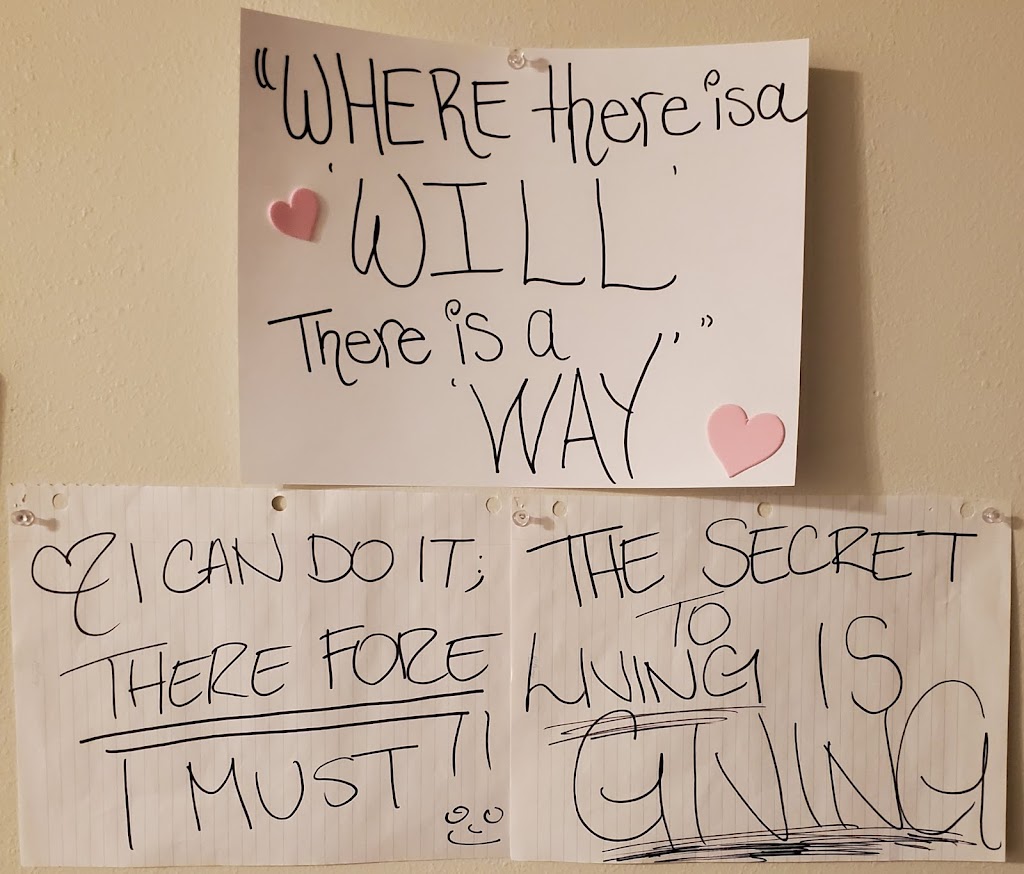 "WHERE there is a
'WILL'
There is a
'WAY'"
I CAN DO IT;
THERE FORE
I MUST!!
THE SECRET
TO
LIVING IS
GIVING